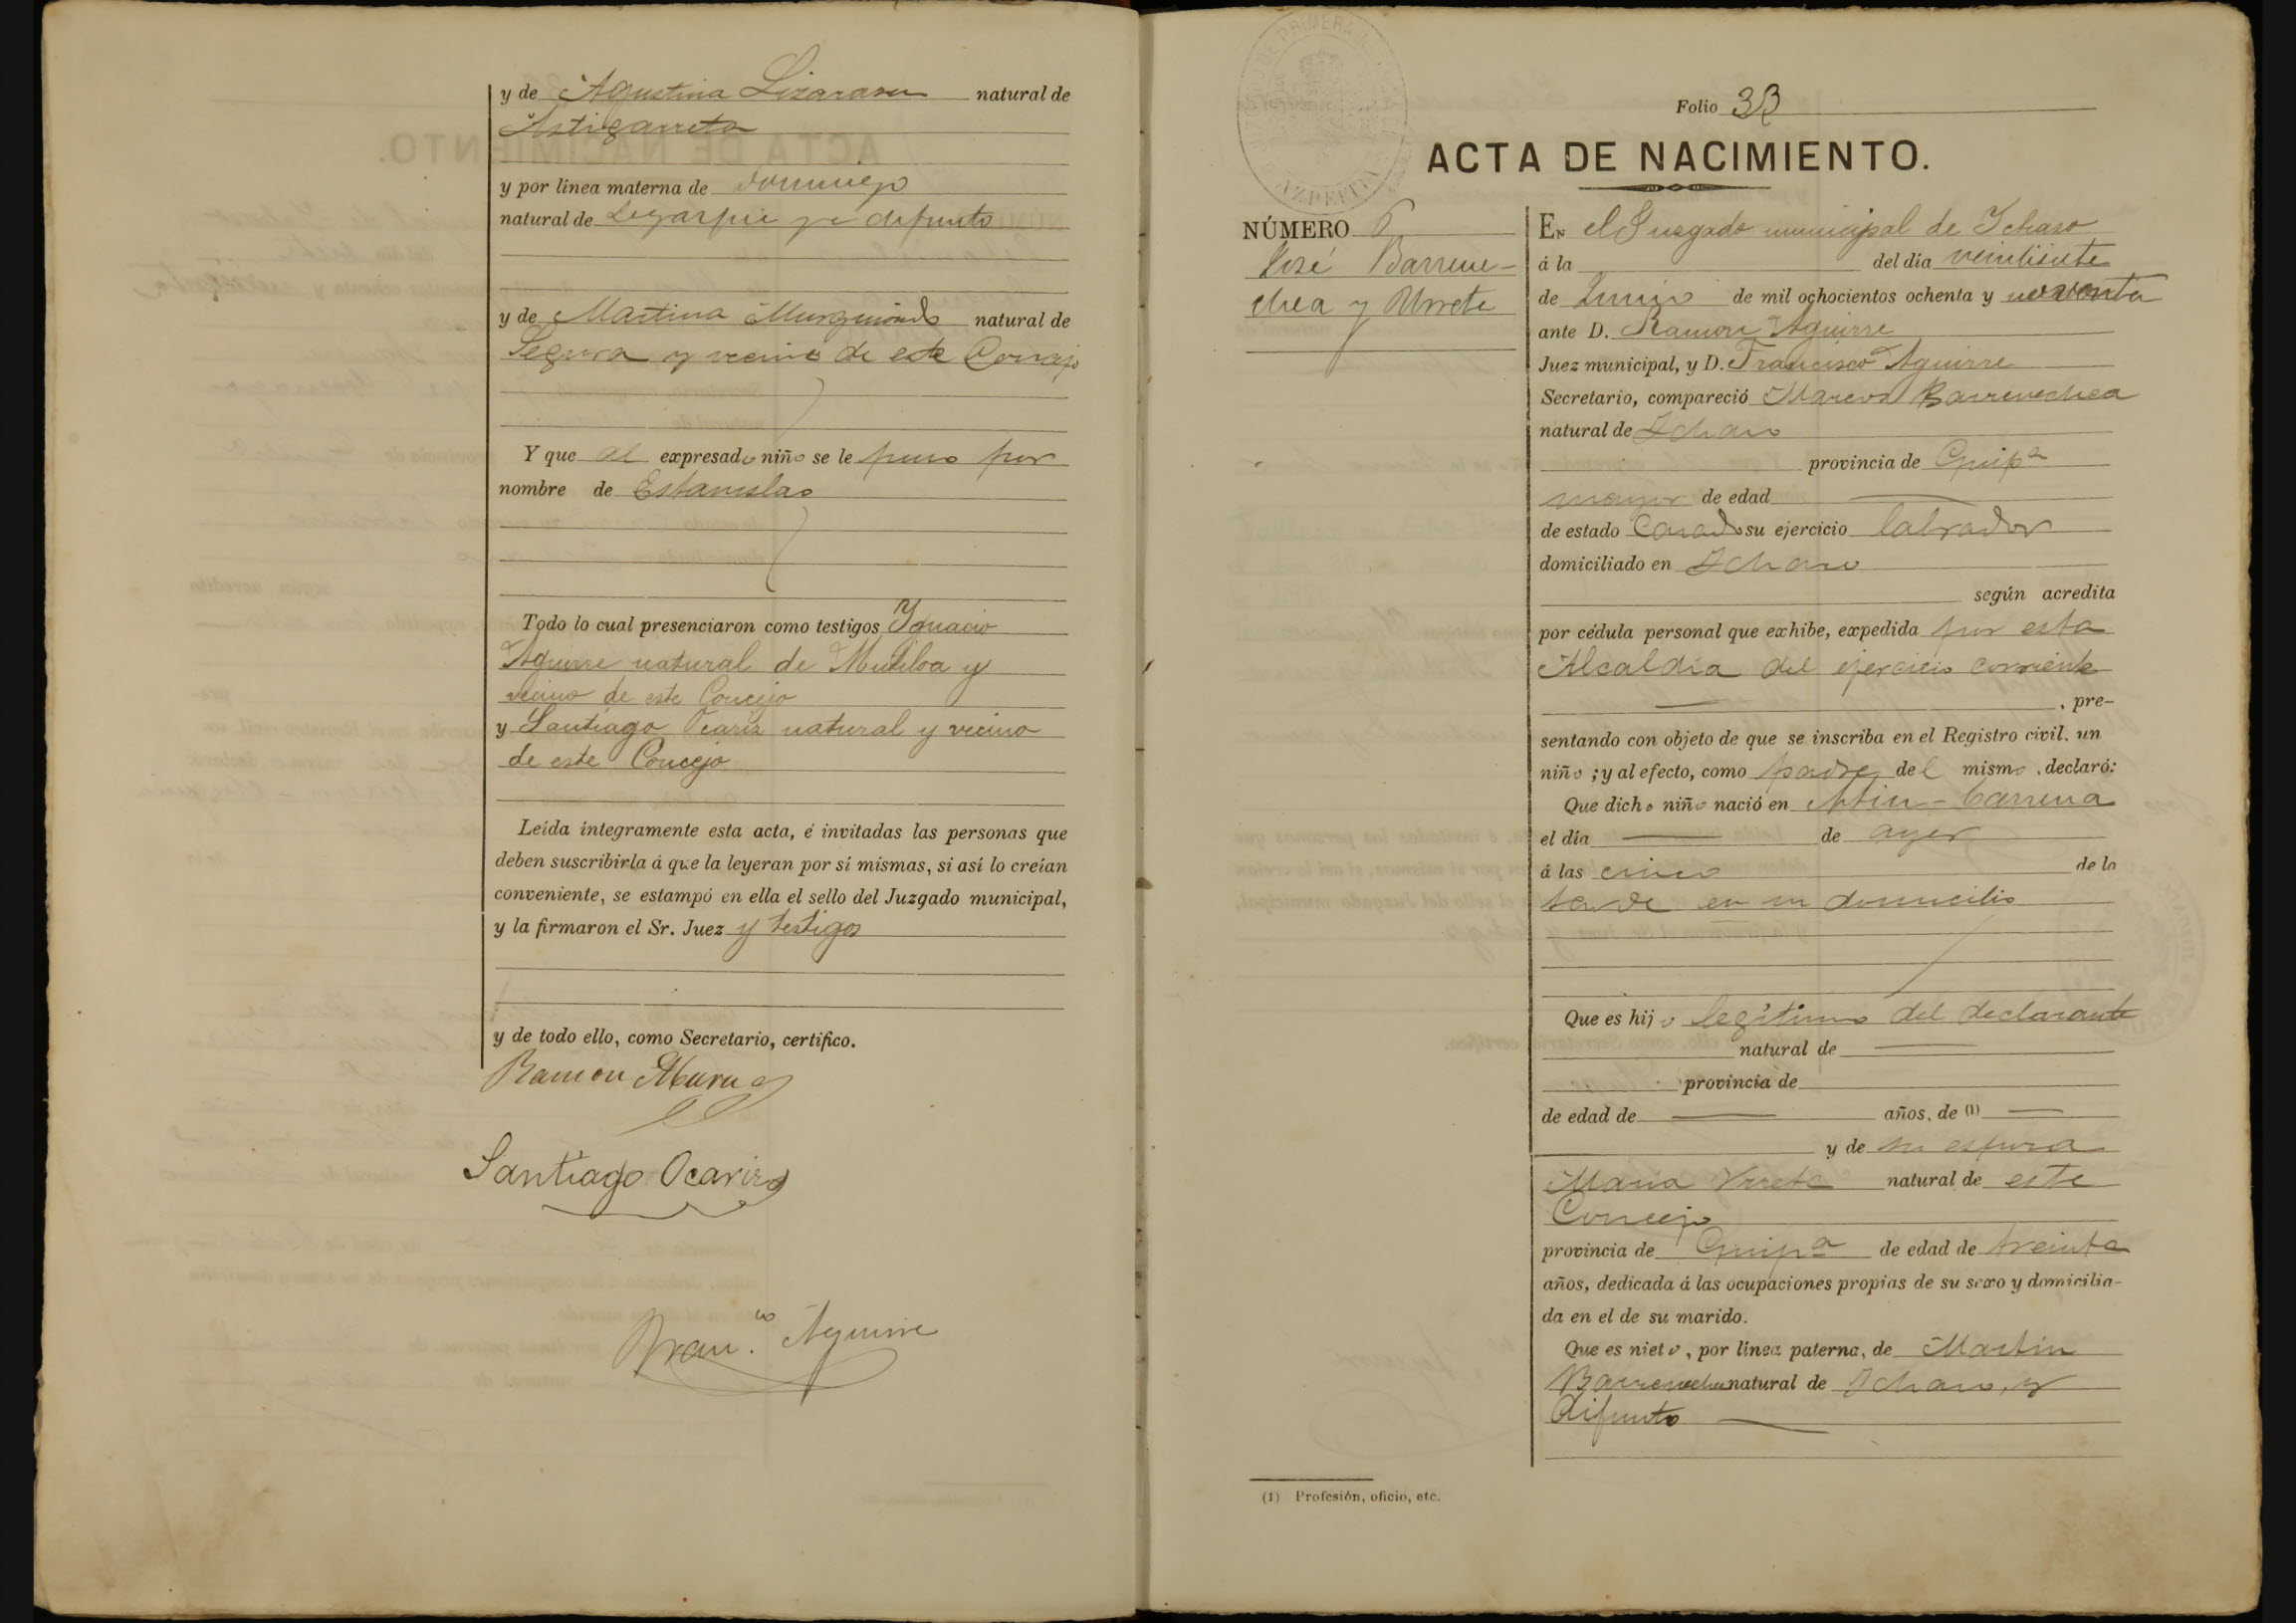 y de Agustina Lizarazu natural de
Astigarreta
y por línea materna de Domingo
natural de Legazpia ya difunto
y de Martina Murguiondo natural de
Segura y vecino de este Concejo
Y que al expresado niño se le puso por
nombre de Estanislao
Todo lo cual presenciaron como testigos Ygnacio
Aguirre natural de Mutiloa y
vecino de este Concejo
y Santiago Ocariz natural y vecino
de este Concejo
Leída íntegramente esta acta, é invitadas las personas que
deben suscribirla á que la leyeran por sí mismas, si así lo creían
conveniente, se estampó en ella el sello del Juzgado municipal,
y la firmaron el Sr. Juez y testigos
y de todo ello, como Secretario, certifico.
Ramon
Santiago Ocariz
Fran.co Aguirre
Folio 33
ACTA DE NACIMIENTO.
AZPEITIA
NÚMERO 6
José Barrene-
chea y Urreta
En el Juzgado municipal de Ychaso
á la del día veintisiete
de Junio de mil ochocientos ochenta y noventa
ante D. Ramon Aguirre
Juez municipal, y D. Francisco Aguirre
Secretario, compareció Marcos Barrenechea
natural de Ichaso
provincia de Guipa
mayor de edad
de estado Casado su ejercicio labrador
domiciliado en Ichaso
según acredita
por cédula personal que exhibe, expedida por esta
Alcaldia del ejercicio corriente
, pre-
sentando con objeto de que se inscriba en el Registro civil, un
niño ; y al efecto, como padre del mismo , declaró:
Que dicho niño nació en -barrena
el día de ayer
á las cinco de la
tarde en su domicilio
Que es hijo legítimo del declarante
natural de
provincia de
de edad de años, de (1)
y de su esposa
Maria Urreta natural de este
Concejo
provincia de Guipa de edad de treinta
años, dedicada á las ocupaciones propias de su sexo y domicilia-
da en el de su marido.
Que es nieto, por línea paterna, de Martin
Barrenechea natural de Ichaso, y
difunto
(1) Profesión, oficio, etc.